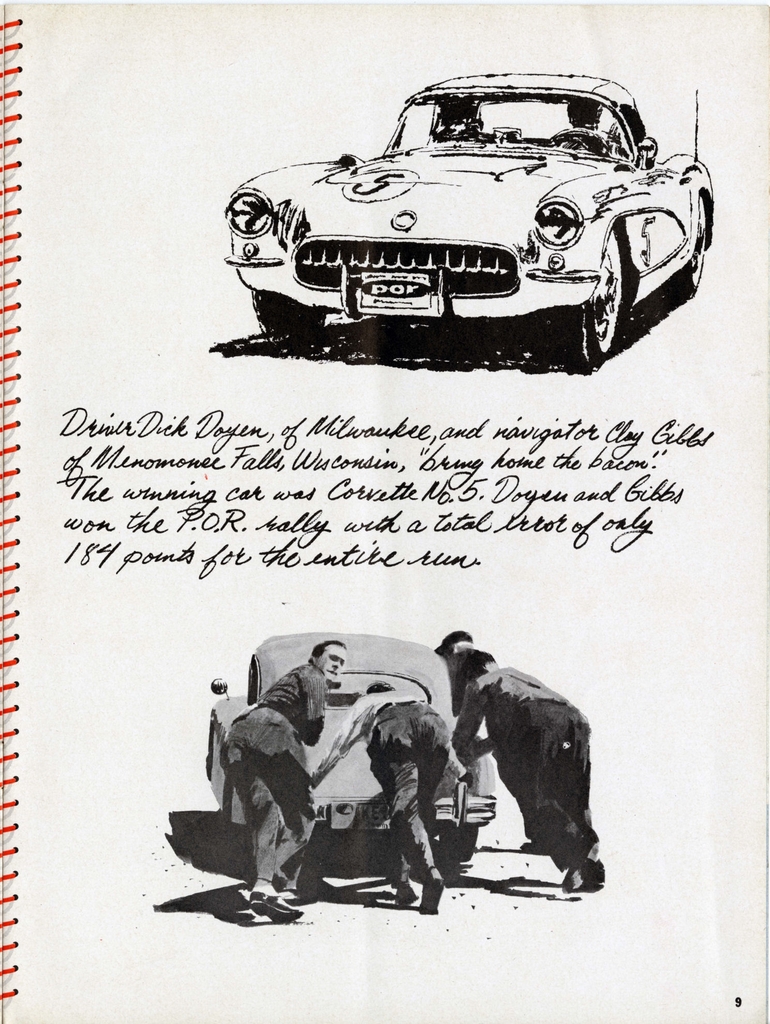 5
5
por
Driver Dick Doyen, of Milwaukee, and navigator Clay Gibbs
of Menomonee Falls, Wisconsin, "bring home the bacon".
The winning car was Corvette No. 5. Doyen and Gibbs
won the P.O.R. rally with a total error of only
184 points for the entire run.
9